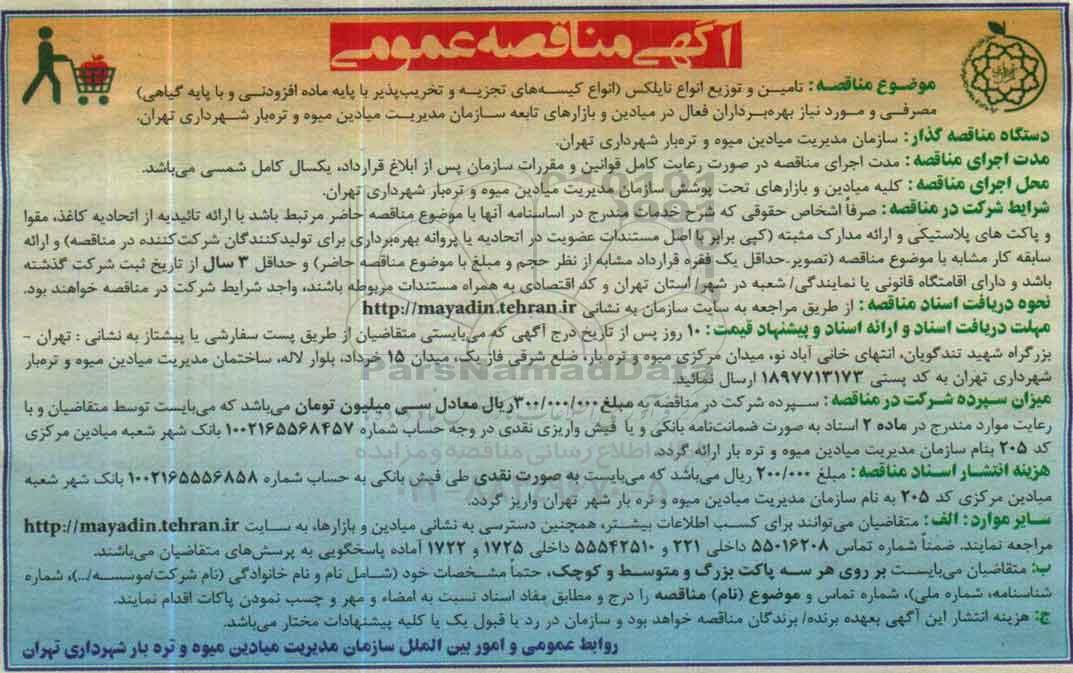 آگهی مناقصه عمومی
موضوع مناقصه: تامیـن و توزیع انواع نایلکس (انواع کیسه‌های تجزیـه و تخریب‌پذیر با پایه ماده افزودنـی و با پایه گیاهی)
مصرفـی و مـورد نیاز بهره‌بـرداران فعال در میادین و بازارهای تابعه سـازمان مدیریـت میادین میوه و تره‌بار شـهرداری تهران.
دستگاه مناقصه گذار: سازمان مدیریت میادین میوه و تره‌بار شهرداری تهران.
مدت اجرای مناقصه: مدت اجرای مناقصه در صورت رعایت کامل قوانین و مقررات سازمان پس از ابلاغ قرارداد، یکسال کامل شمسی می‌باشد.
محل اجرای مناقصه: کلیه میادین و بازارهای تحت پوشش سازمان مدیریت میادین میوه و تره‌بار شهرداری تهران.
شرایط شرکت در مناقصه: صرفاً اشخاص حقوقی که شرح خدمات مندرج در اساسنامه آنها با موضوع مناقصه حاضر مرتبط باشد با ارائه تائیدیه از اتحادیه کاغذ، مقوا
و پاکت های پلاستیکی و ارائه مدارک مثبته (کپی برابر با اصل مستندات عضویت در اتحادیه یا پروانه بهره‌برداری برای تولیدکنندگان شرکت‌کننده در مناقصه) و ارائه
سابقه کار مشابه با موضوع مناقصه (تصویر حداقل یک فقره قرارداد مشابه از نظر حجم و مبلغ با موضوع مناقصه حاضر) و حداقل ۳ سال از تاریخ ثبت شرکت گذشته
باشد و دارای اقامتگاه قانونی یا نمایندگی/ شعبه در شهر/ استان تهران و کد اقتصادی به همراه مستندات مربوطه باشند، واجد شرایط شرکت در مناقصه خواهند بود.
نحوه دریافت اسناد مناقصه: از طریق مراجعه به سایت سازمان به نشانی http://mayadin.tehran.ir
مهلت دریافت اسناد و ارائه اسناد و پیشنهاد قیمت: ۱۰ روز پس از تاریخ درج آگهی که می‌بایستی متقاضیان از طریق پست سفارشی یا پیشتاز به نشانی: تهران -
بزرگراه شهید تندگویان، انتهای خانی آباد نو، میدان مرکزی میوه و تره بار، ضلع شرقی فاز یک، میدان ۱۵ خرداد، بلوار لاله، ساختمان مدیریت میادین میوه و تره‌بار
شهرداری تهران به کد پستی ۱۸۹۷۷۱۳۱۷۳ ارسال نمائید.
میزان سپرده شرکت در مناقصه: سپرده شرکت در مناقصه به مبلغ ۳۰۰/۰۰۰/۰۰۰ ریال معادل سـی میلیون تومان می‌باشد که می‌بایست توسط متقاضیان و با
رعایت موارد مندرج در ماده ۲ اسناد به صورت ضمانت‌نامه بانکی و یا فیش واریزی نقدی در وجه حساب شماره ۱۰۰۲۱۶۵۵۶۸۴۵۷ بانک شهر شعبه میادین مرکزی
کد ۲۰۵ بنام سازمان مدیریت میادین میوه و تره بار ارائه گردد.
هزینه انتشار اسناد مناقصه: مبلغ ۲۰۰/۰۰۰ ریال می‌باشد که می‌بایست به صورت نقدی طی فیش بانکی به حساب شماره ۱۰۰۲۱۶۵۵۵۶۸۵۸ بانک شهر شعبه
میادین مرکزی کد ۲۰۵ به نام سازمان مدیریت میادین میوه و تره بار شهر تهران واریز گردد.
سـایر موارد: الف: متقاضیان می‌توانند برای کسـب اطلاعات بیشتـر، همچنین دسترسـی به نشانی میادین و بازارها، به سـایت http://mayadin.tehran.ir
مراجعه نمایند. ضمناً شماره تماس ۵۵۰۱۶۲۰۸ داخلی ۲۲۱ و ۵۵۵۴۲۵۱۰ داخلی ۱۷۲۵ و ۱۷۲۲ آماده پاسخگویی به پرسش‌های متقاضیان می‌باشند.
ب: متقاضیان می‌بایسـت بر روی هر سـه پاکت بزرگ و متوسـط و کوچک، حتماً مشـخصات خود (شـامل نام و نام خانوادگی (نام شرکت/موسسـه/...)، شماره
شناسنامه، شماره ملی)، شماره تماس و موضوع (نام) مناقصه را درج و مطابق مفاد اسناد نسبت به امضاء و مهر و چسب نمودن پاکات اقدام نمایند.
ج: هزینه انتشار این آگهی بعهده برنده/ برندگان مناقصه خواهد بود و سازمان در رد یا قبول یک یا کلیه پیشنهادات مختار می‌باشد.
روابط عمومی و امور بین الملل سازمان مدیریت میادین میوه و تره بار شهرداری تهران
ParsNamadData